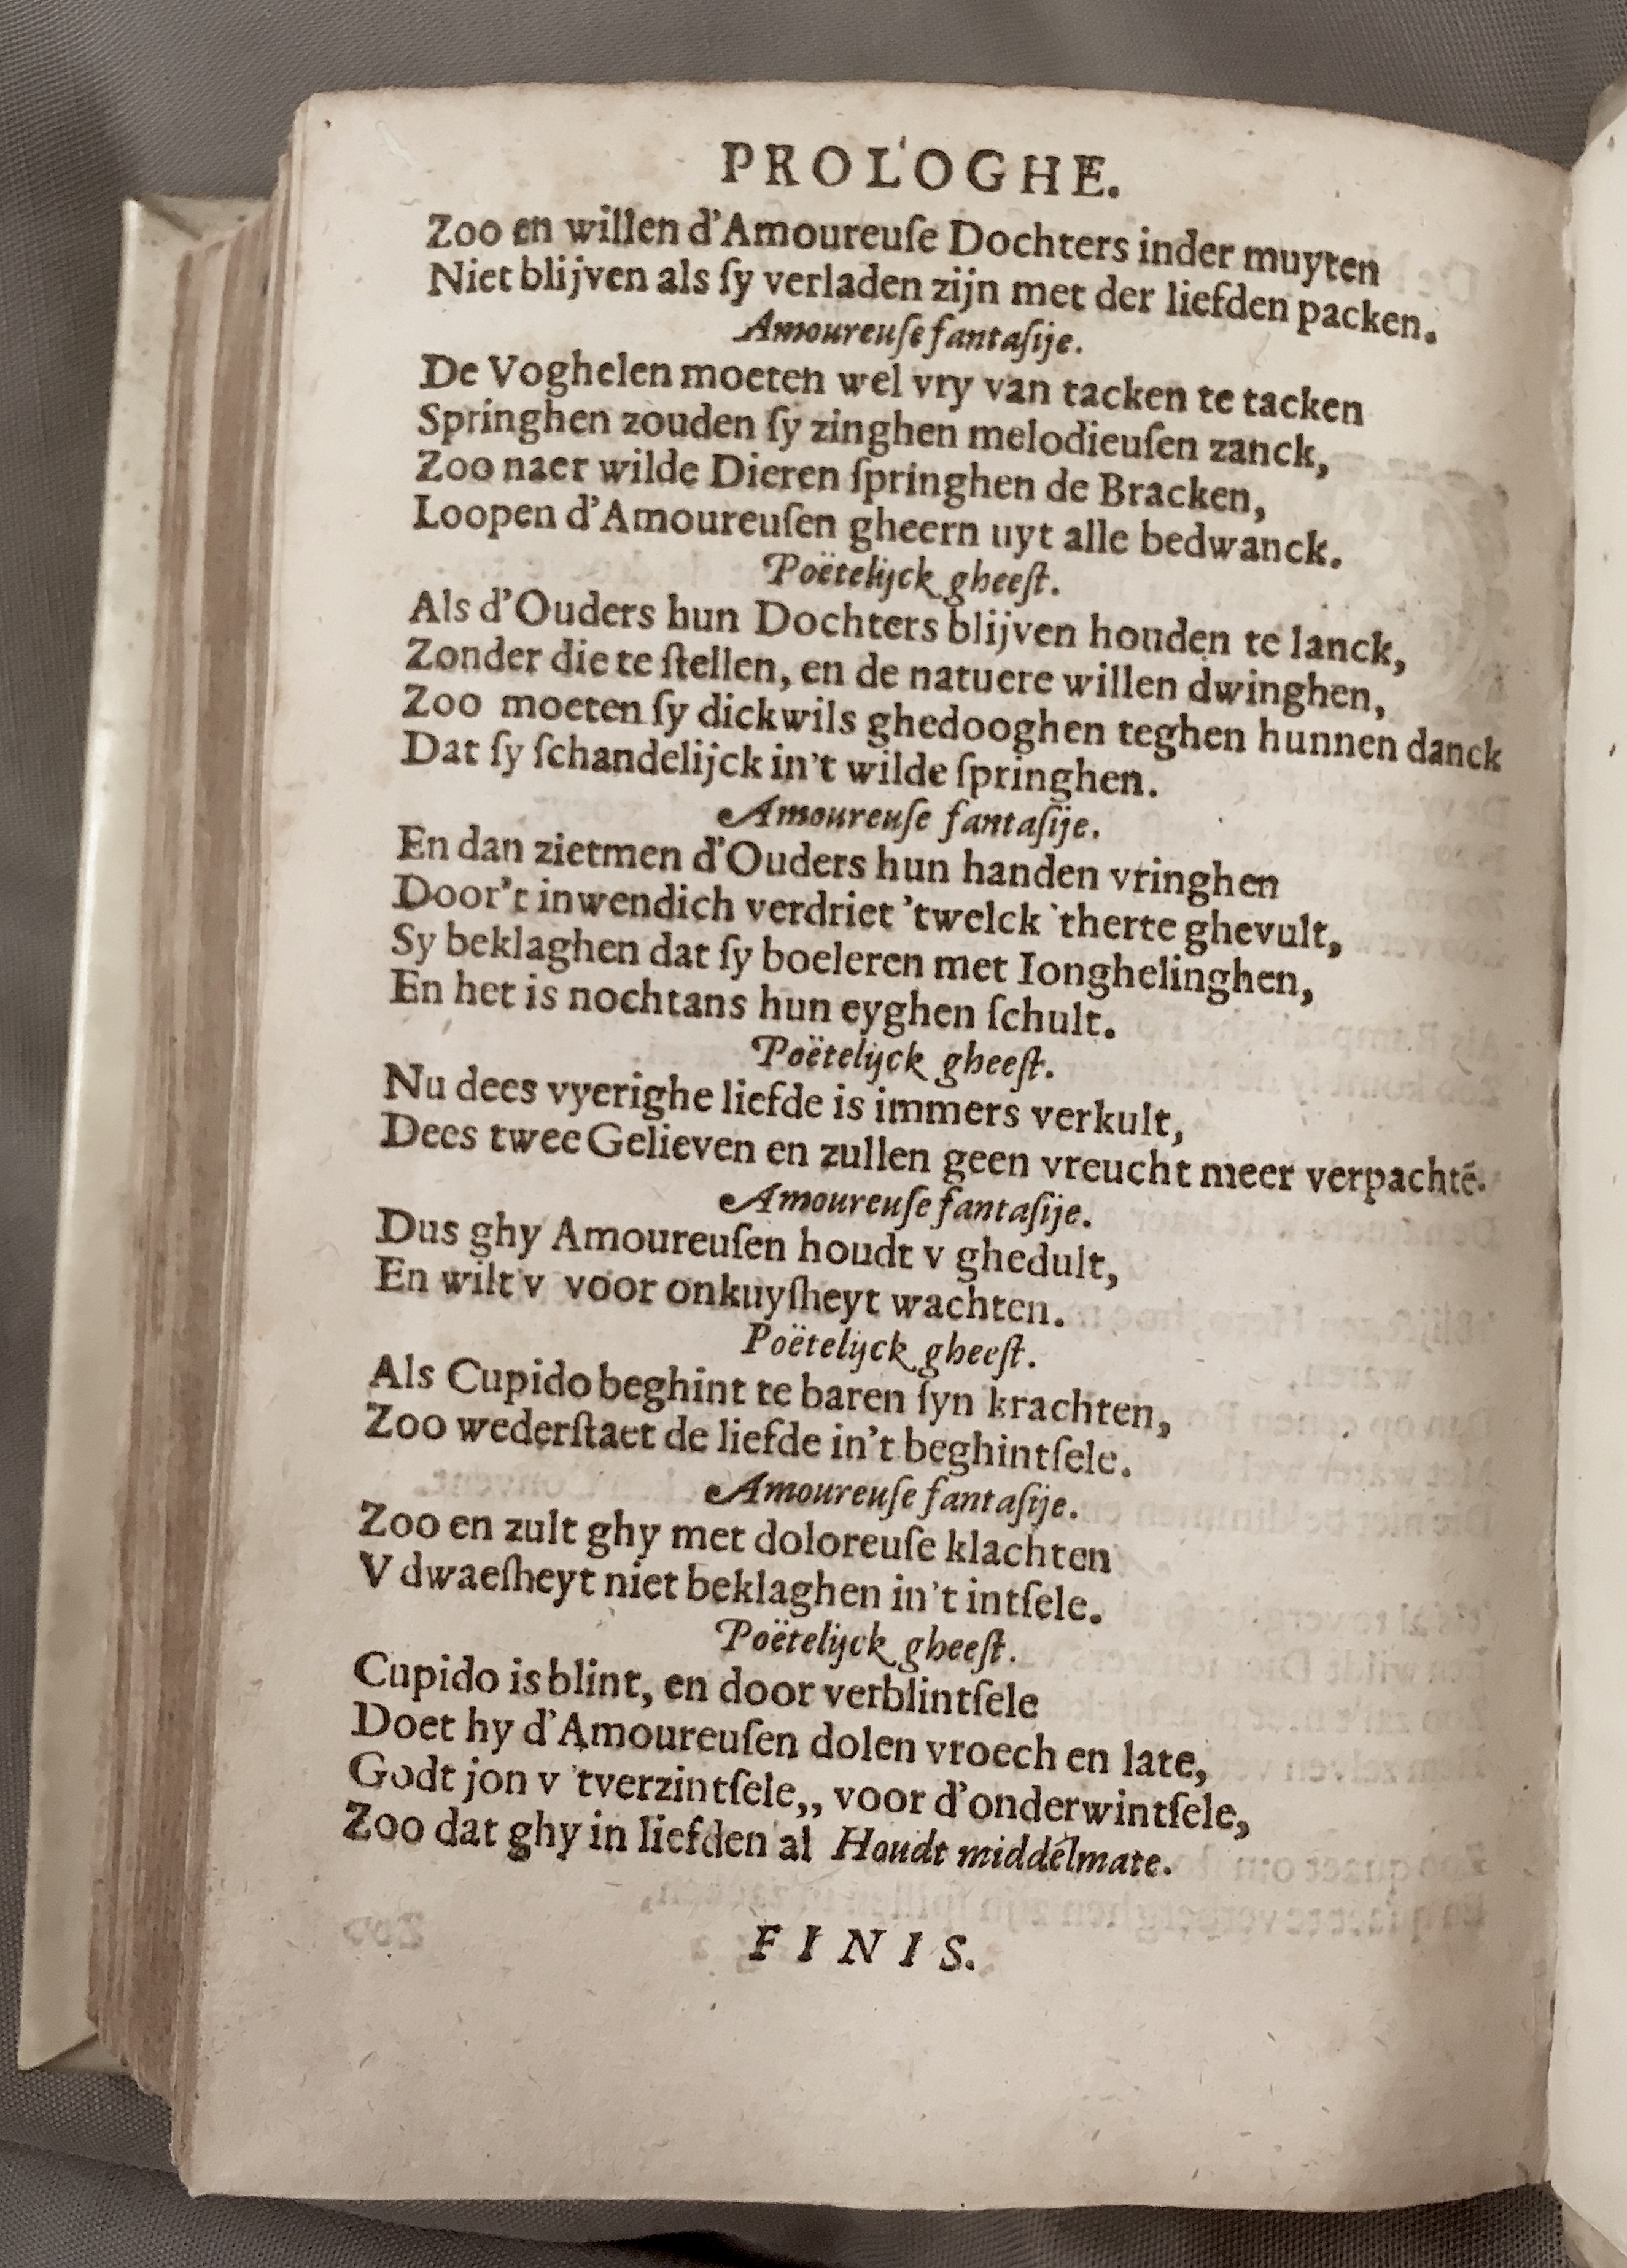 PROLOGHE.
Zoo en willen d'Amoureuſe Dochters inder muyten
Niet blijven als ſy verladen zijn met der liefden packen.
Amoureuſe fantaſije.
De Voghelen moeten wel vry van tacken te tacken
Springhen zouden ſy zinghen melodieuſen zanck,
Zoo naer wilde Dieren ſpringhen de Bracken,
Loopen d'Amoureuſen gheern uyt alle bedwanck.
Poëtelijck gheeſt.
Als d'Ouders hun Dochters blijven houden te lanck,
Zonder die te ſtellen, en de natuere willen dwinghen,
Zoo moeten ſy dickwils ghedooghen teghen hunnen danck
Dat ſy ſchandelijck in't wilde ſpringhen.
Amoureuſe fantaſije.
En dan zietmen d'Ouders hun handen vringhen
Door't inwendich verdriet 'twelck 'therte ghevult,
Sy beklaghen dat ſy boeleren met Ionghelinghen,
En het is nochtans hun eyghen ſchult.
Poëtelijck gheeſt.
Nu dees vyerighe liefde is immers verkult,
Dees twee Gelieven en zullen geen vreucht meer verpachtē.
Amoureuſe fantaſije.
Dus ghy Amoureuſen houdt v ghedult,
En wilt v voor onkuyſheyt wachten.
Poëtelijck gheeſt.
Als Cupido beghint te baren ſyn krachten,
Zoo wederſtaet de liefde in't beghintſele.
Amoureuſe fantaſije.
Zoo en zult ghy met doloreuſe klachten
V dwaeſheyt niet beklaghen in't intſele.
Poëtelijck gheeſt.
Cupido is blint, en door verblintſele
Doet hy d'Amoureuſen dolen vroech en late,
Godt jon v 'tverzintſele,, voor d'onderwintſele,
Zoo dat ghy in liefden al Houdt middelmate.
FINIS.